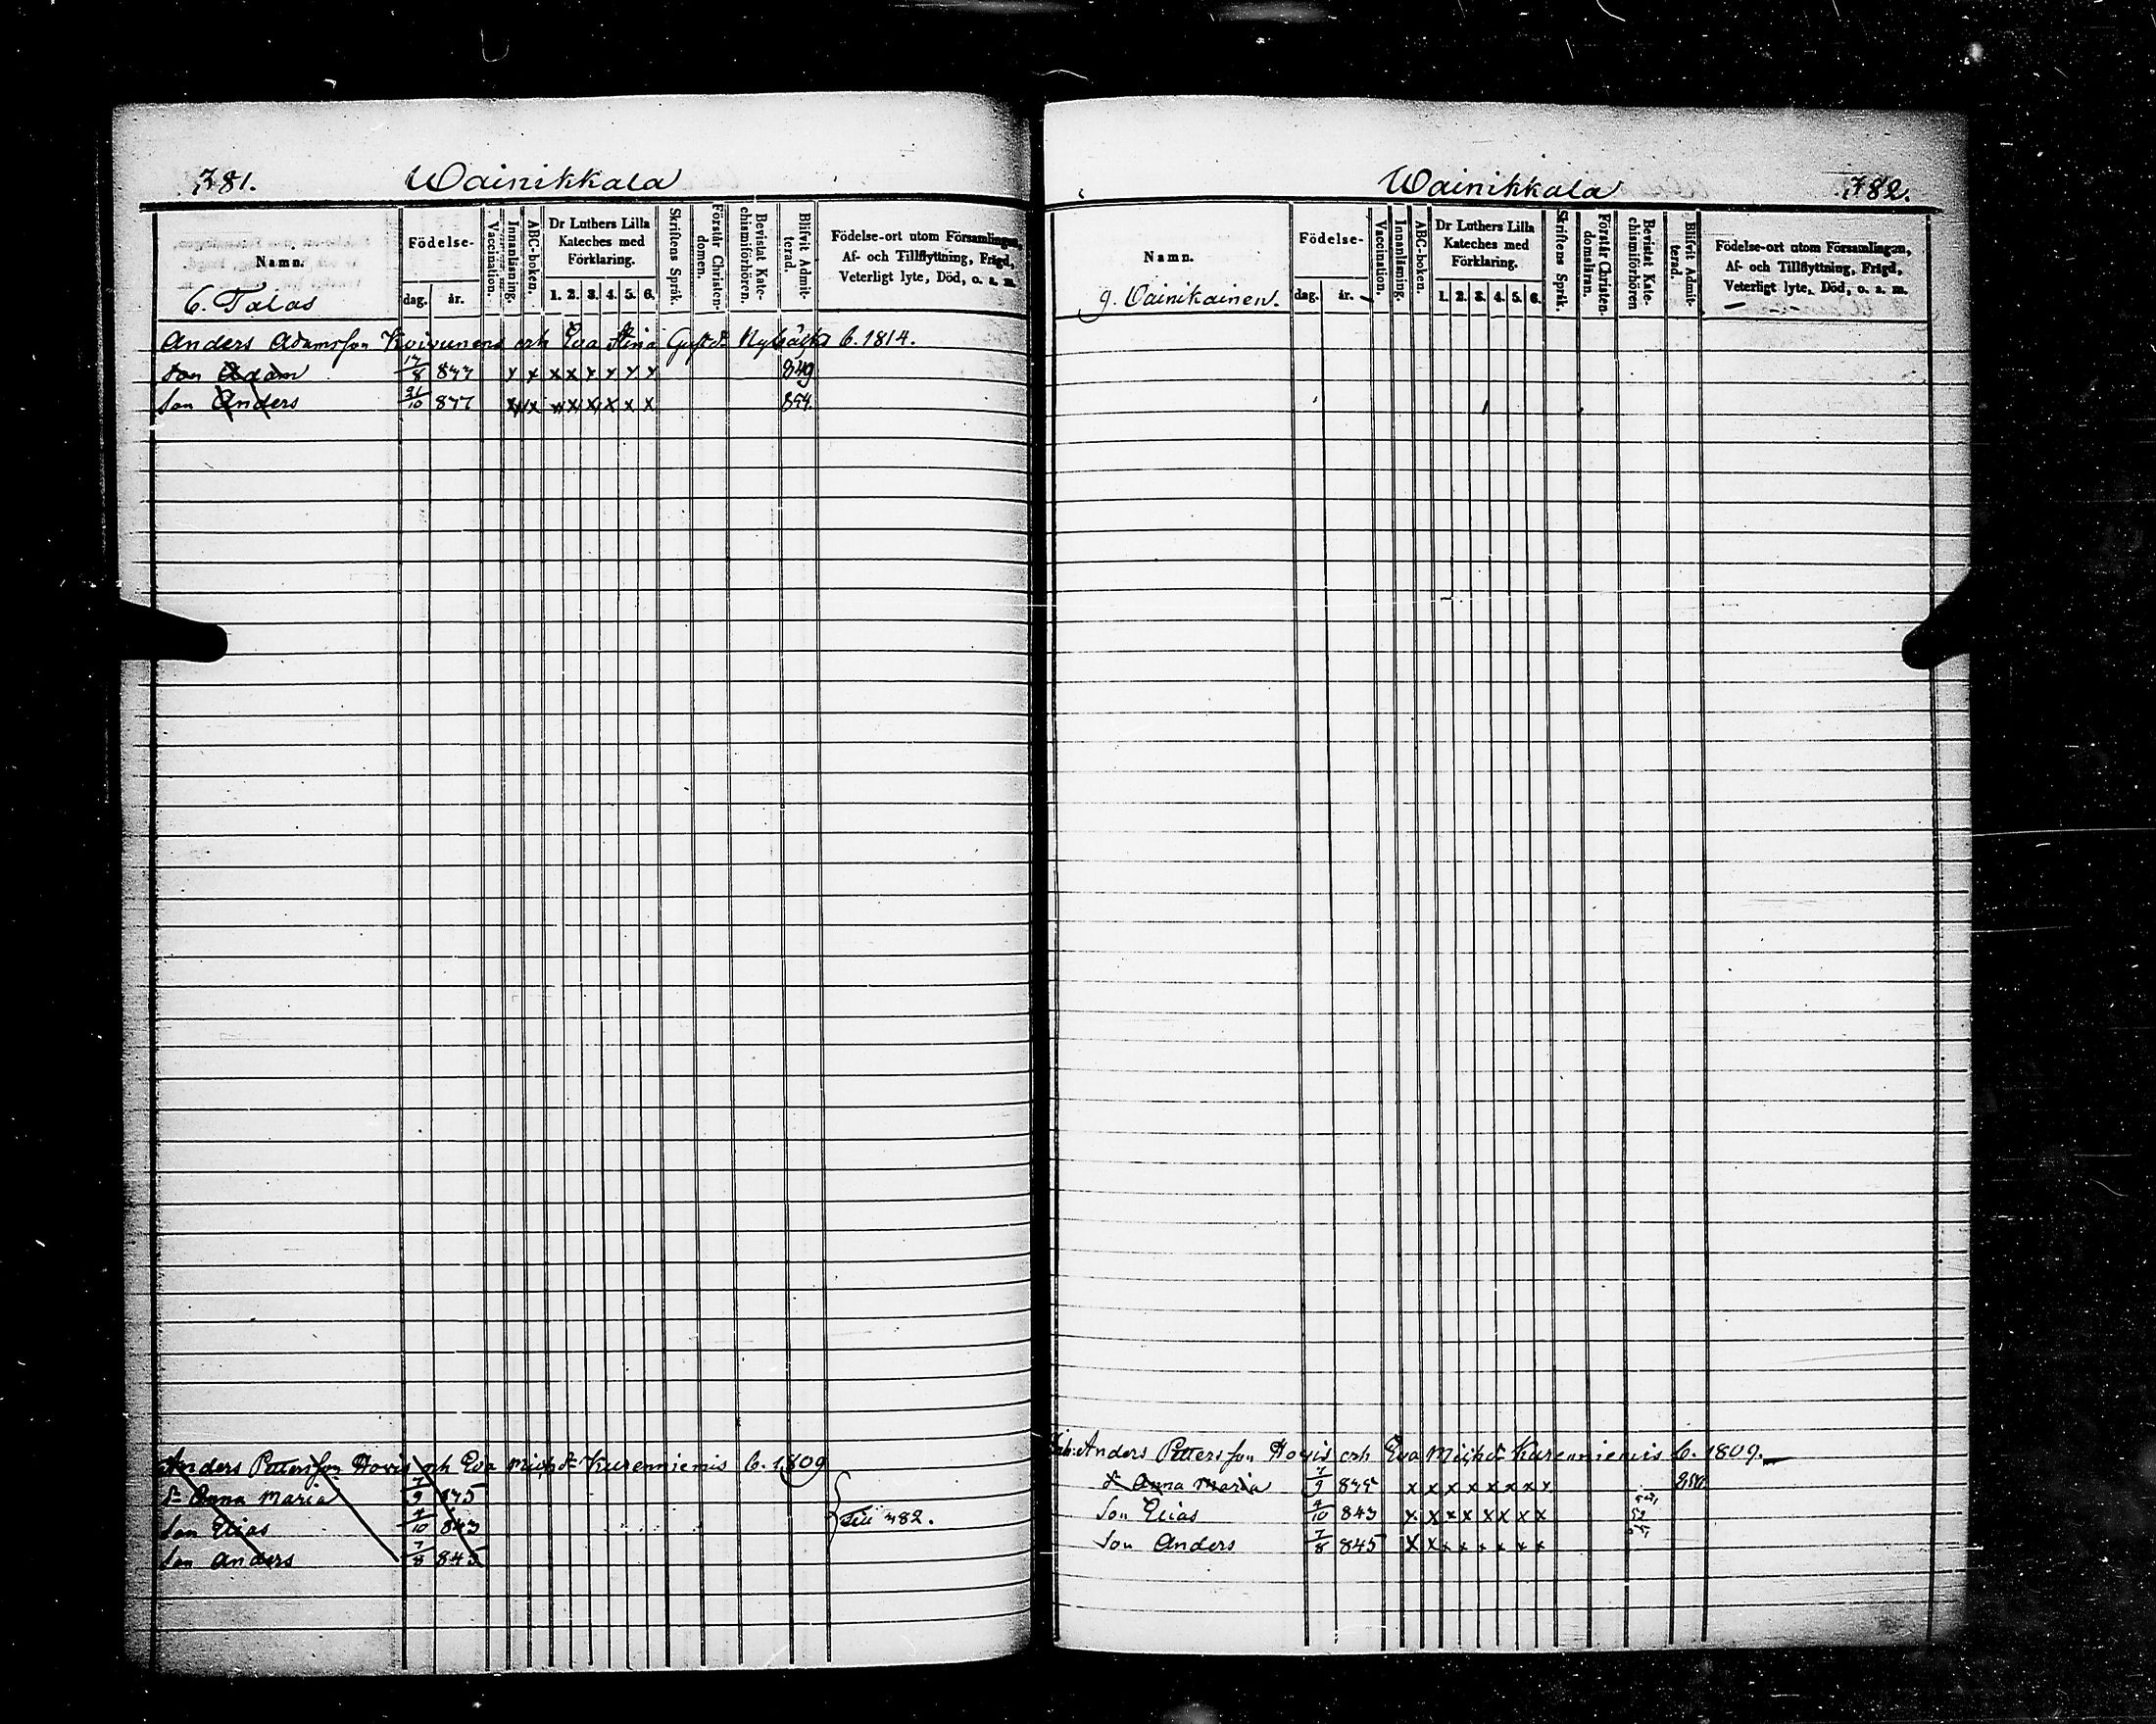 381. Wainikkala
Namn.
Födelse-
dag. år.
Vaccination.
Innanläsning.
ABC-boken.
Dr Luthers Lilla Kateches med Förklaring.
1. 2. 3. 4. 5. 6.
Skriftens Språk.
Förstår Christen-domen.
Bevistat Kate-chismiförhören.
Blifvit Admit-terad.
Födelse-ort utom Församlingen,
Af- och Tillflyttning, Frägd,
Veterligt lyte, Död, o. s. m.
6. Talas
Anders Adamsson Koivunen och Eva Stina Gust.dr 6. 1814.
Son Adam 17/8 837 x x x x x x x x 849
Son Anders 31/10 837 x x x x x x x x 854.
Anders Pettersson Hovis och Eva Mich.dr Kurenniemis 6. 1809
dr Anna Maria 7/9 835
Son Elias 4/10 843 Till 382.
Son Anders 7/8 845
Wainikkala 382.
Namn.
Födelse-
dag. år.
Vaccination.
Innanläsning.
ABC-boken.
Dr Luthers Lilla Kateches med Förklaring.
1. 2. 3. 4. 5. 6.
Skriftens Språk.
Förstår Christen-domsläran.
Bevistat Kate-chismiförhören
Blifvit Admit-terad.
Födelse-ort utom Församlingen,
Af- och Tillflyttning, Frägd,
Veterligt lyte, Död, o. s. m.
9. Wainikainen.
Anders Pettersson Hovis och Eva Mich.dr Kurenniemis 6. 1809.
dr Anna Maria 7/9 835 x x x x x x x x
Son Elias 4/10 843 x x x x x x x x
Son Anders 7/8 845 x x x x x x x x